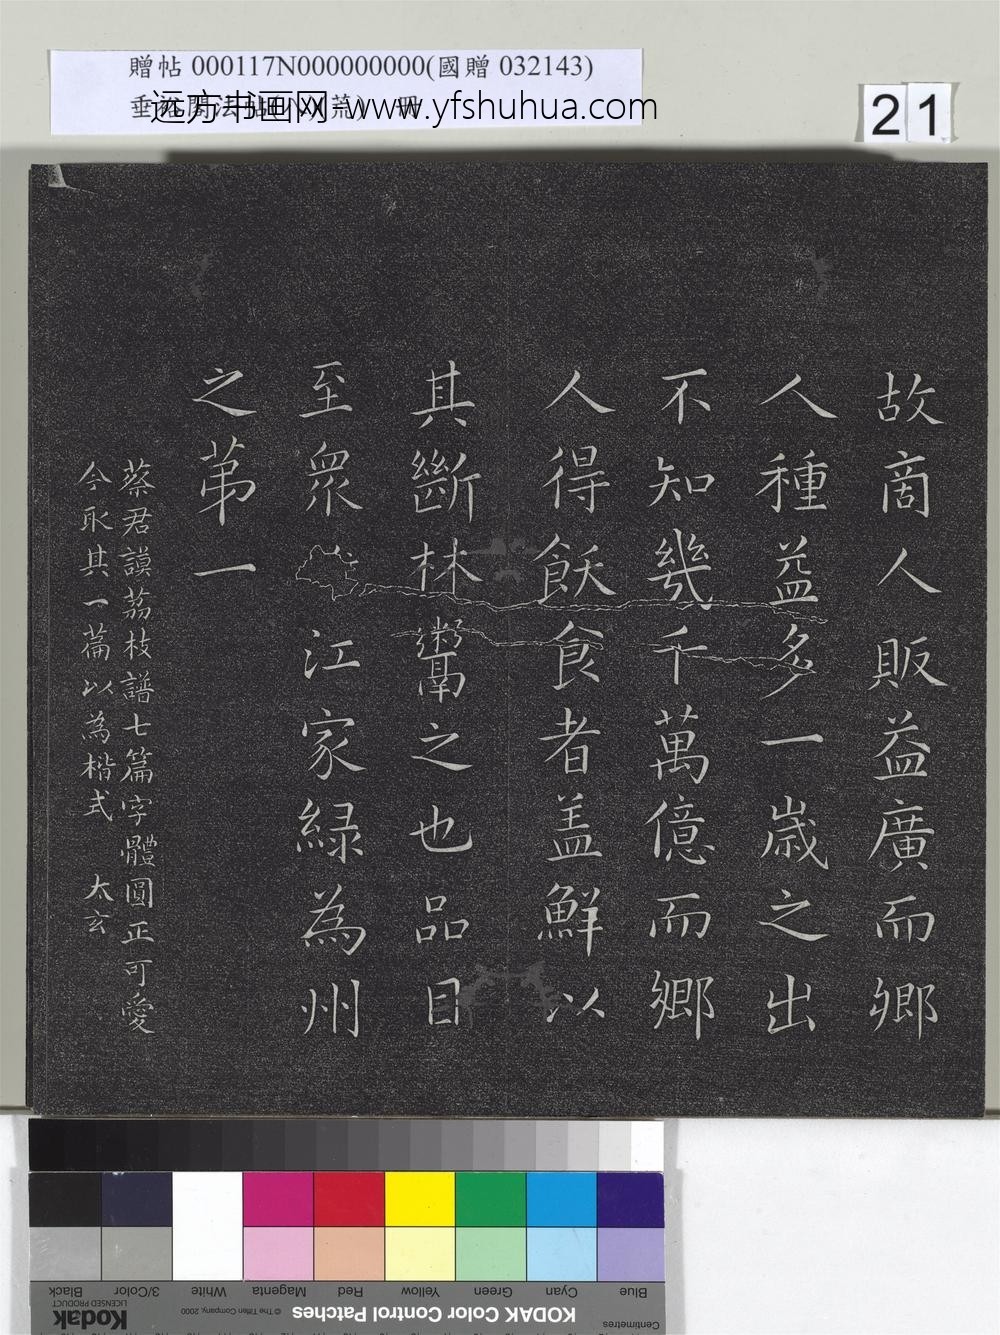 贈帖 000117N000000000(國贈 032143)
远方书画网-www.yfshuhua.com
21
故商人販益廣而鄉
人種益多一歲之出
不知幾千萬億而鄉
人得飫食者盖鮮以
其斷林鬻之也品目
至衆 江家綠為州
之苐一
蔡君謨茘枝譜七篇字體圓正可愛
今取其一篇以為楷式 太玄
Blue Cyan Green Yellow Red Magenta White 3/Color Black
KODAK Color Control Patches
© The Tiffen Company, 2000
Kodak
LICENSED PRODUCT
Centimetres